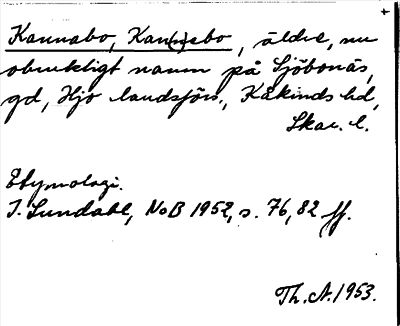 Kannabo, Kan(n)ebo, äldre, nu
obrukligt namn på Sjöbonäs,
gd, Hjo landsförs., Kåkinds hd,
Skar. l.
Etymologi.
I. Lundahl, NoB 1952, s. 76, 82 ff.
Th. A. 1953.